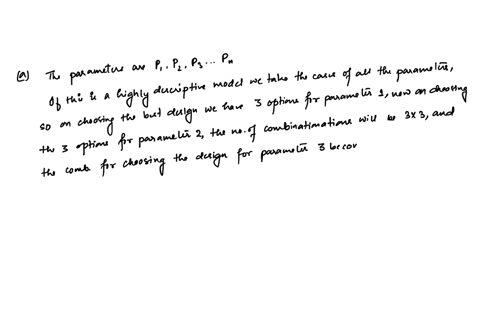 (a) The parameters are P₁, P₂, P₃... Pₙ
Of this is a highly descriptive model we take the case of all the parameters,
so on choosing the but design we have 3 options for parameter 1, now on choosing
the 3 options for parameter 2, the no. of combinatimations will be 3x3, and
the comb for choosing the design for parameter 3 becom